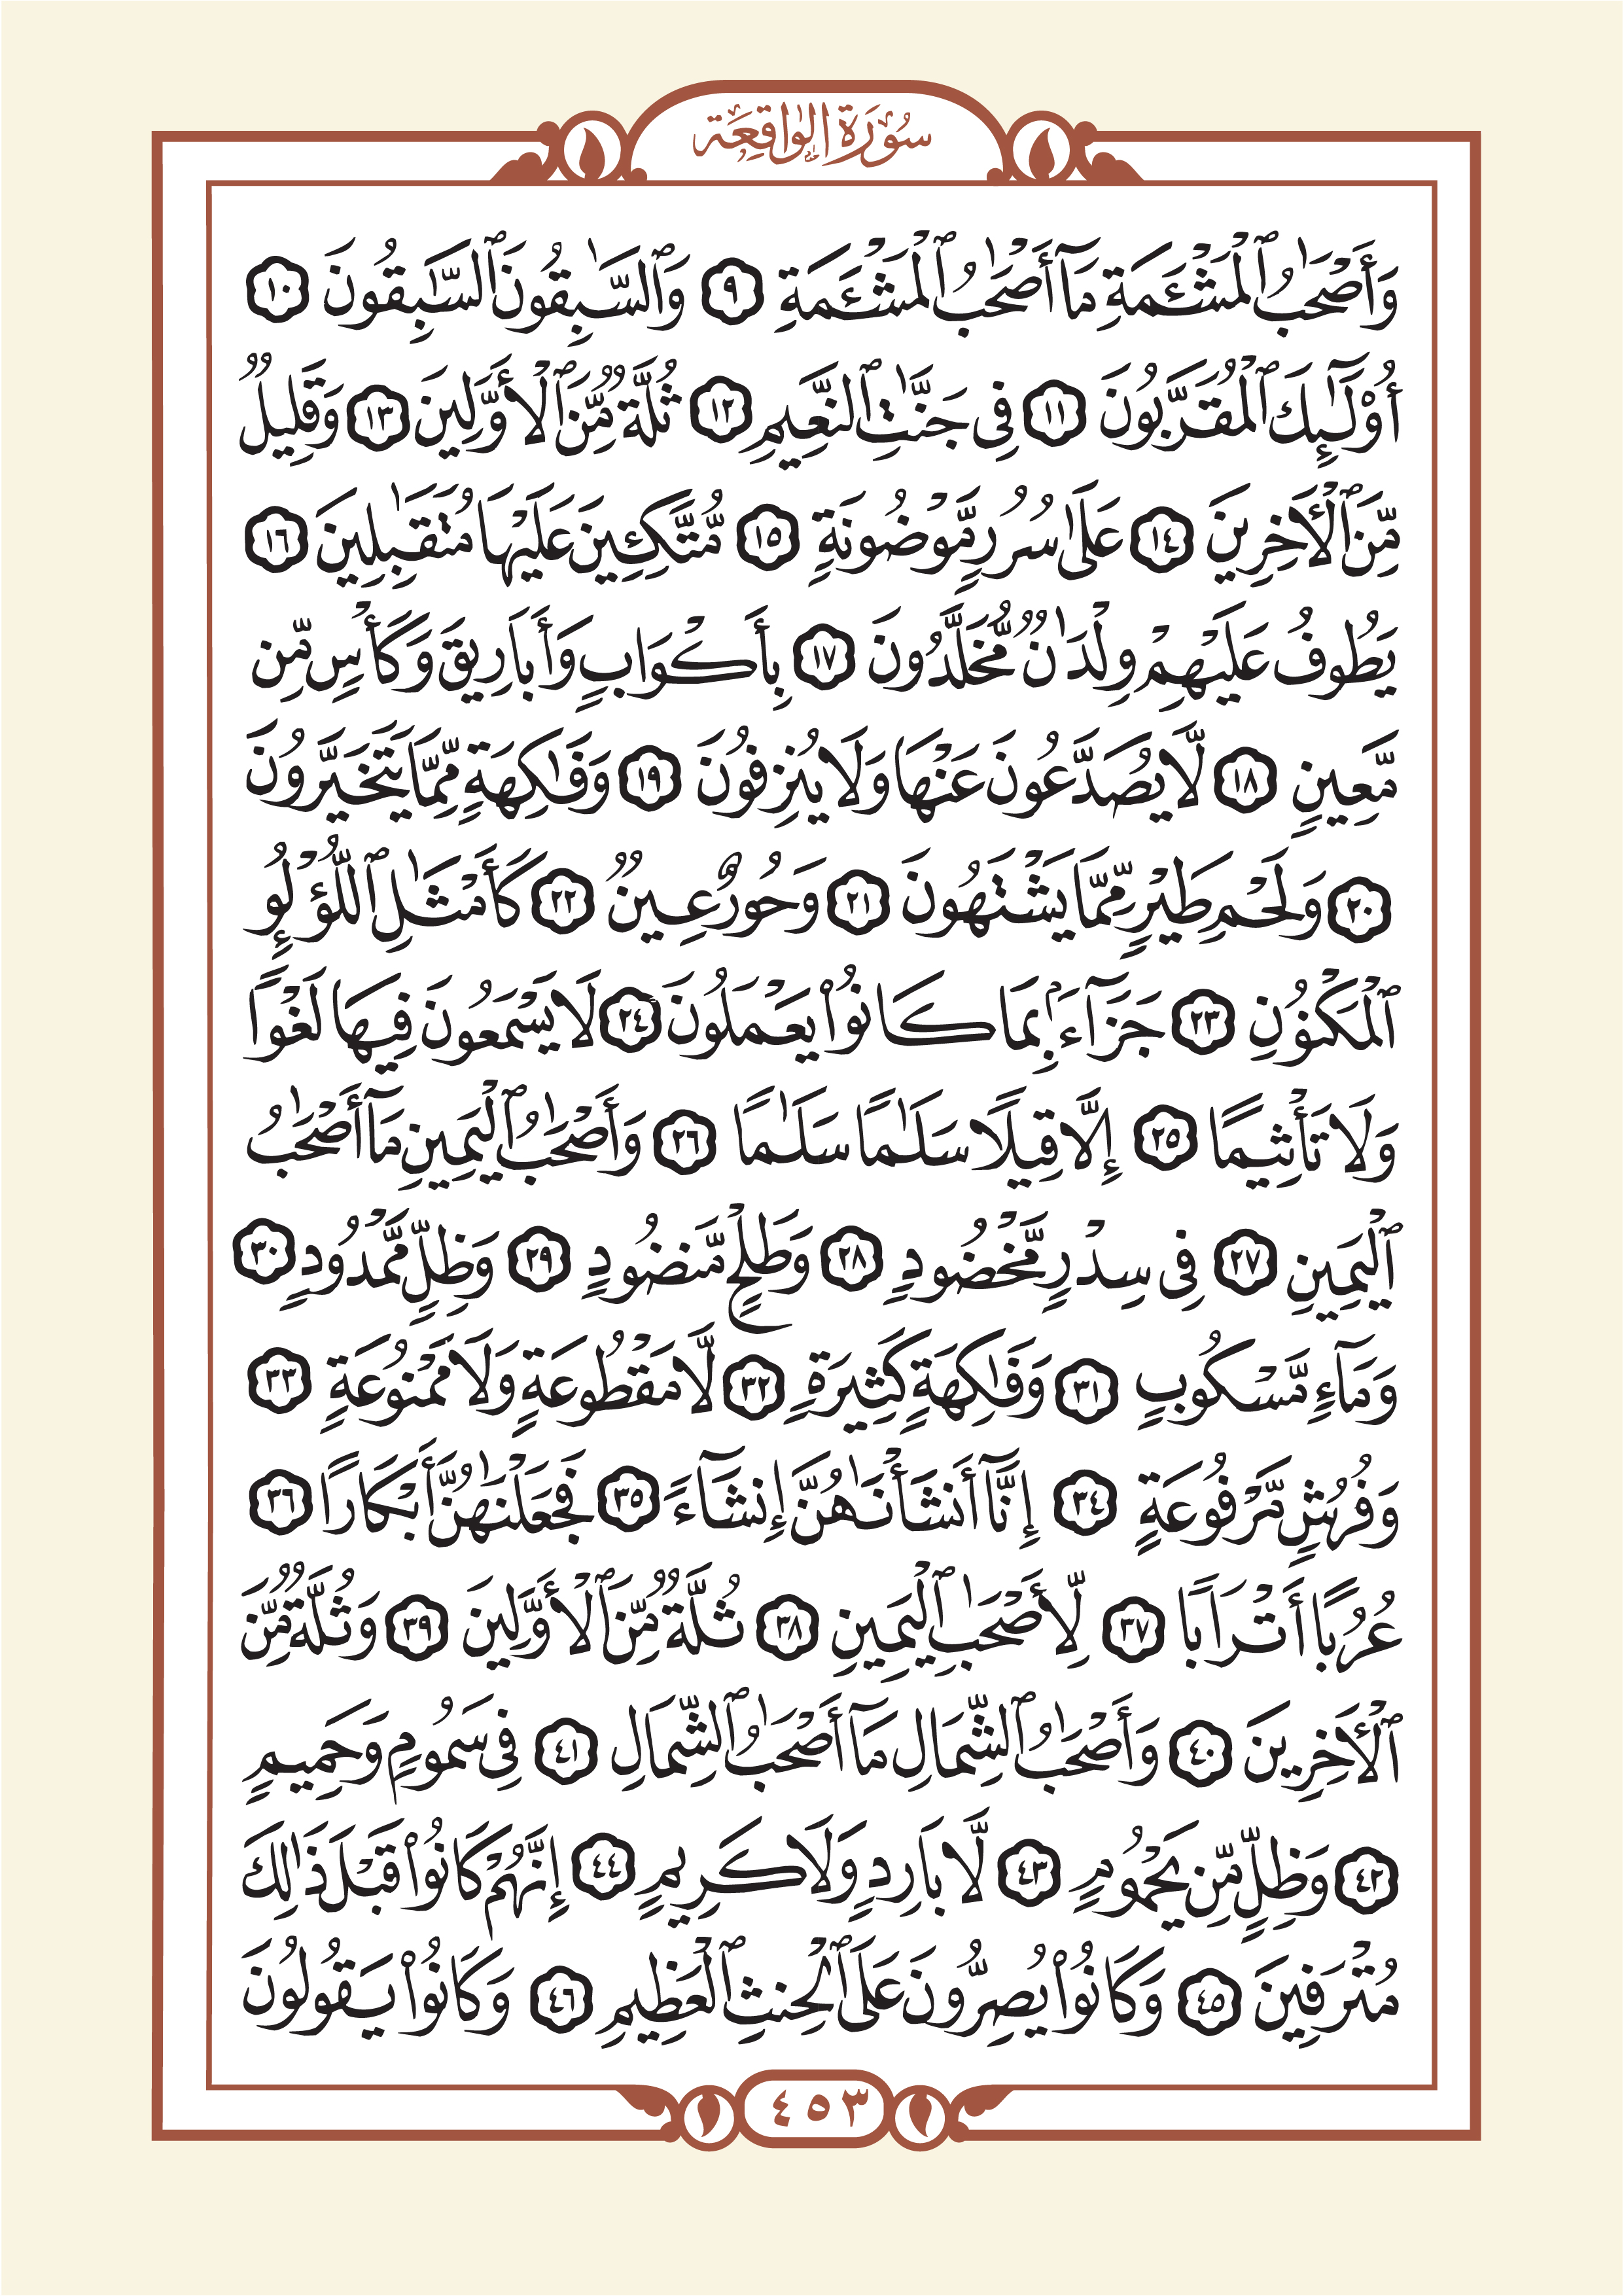 سُورَةُ الوَاقِعَة
وَأَصْحَٰبُ ٱلْمَشْـَٔمَةِ مَآ أَصْحَٰبُ ٱلْمَشْـَٔمَةِ ٩ وَٱلسَّٰبِقُونَ ٱلسَّٰبِقُونَ ١٠
أُو۟لَٰٓئِكَ ٱلْمُقَرَّبُونَ ١١ فِى جَنَّٰتِ ٱلنَّعِيمِ ١٢ ثُلَّةٌ مِّنَ ٱلْأَوَّلِينَ ١٣ وَقَلِيلٌ
مِّنَ ٱلْأَخِرِينَ ١٤ عَلَىٰ سُرُرٍ مَّوْضُونَةٍ ١٥ مُّتَّكِـِٔينَ عَلَيْهَا مُتَقَٰبِلِينَ ١٦
يَطُوفُ عَلَيْهِمْ وِلْدَٰنٌ مُّخَلَّدُونَ ١٧ بِأَكْوَابٍ وَأَبَارِيقَ وَكَأْسٍ مِّن
مَّعِينٍ ١٨ لَّا يُصَدَّعُونَ عَنْهَا وَلَا يُنزِفُونَ ١٩ وَفَٰكِهَةٍ مِّمَّا يَتَخَيَّرُونَ
٢٠ وَلَحْمِ طَيْرٍ مِّمَّا يَشْتَهُونَ ٢١ وَحُورٌ عِينٌ ٢٢ كَأَمْثَٰلِ ٱللُّؤْلُؤِ
ٱلْمَكْنُونِ ٢٣ جَزَآءًۢ بِمَا كَانُوا۟ يَعْمَلُونَ ٢٤ لَا يَسْمَعُونَ فِيهَا لَغْوًا
وَلَا تَأْثِيمًا ٢٥ إِلَّا قِيلًا سَلَٰمًا سَلَٰمًا ٢٦ وَأَصْحَٰبُ ٱلْيَمِينِ مَآ أَصْحَٰبُ
ٱلْيَمِينِ ٢٧ فِى سِدْرٍ مَّخْضُودٍ ٢٨ وَطَلْحٍ مَّنضُودٍ ٢٩ وَظِلٍّ مَّمْدُودٍ ٣٠
وَمَآءٍ مَّسْكُوبٍ ٣١ وَفَٰكِهَةٍ كَثِيرَةٍ ٣٢ لَّا مَقْطُوعَةٍ وَلَا مَمْنُوعَةٍ ٣٣
وَفُرُشٍ مَّرْفُوعَةٍ ٣٤ إِنَّآ أَنشَأْنَٰهُنَّ إِنشَآءً ٣٥ فَجَعَلْنَٰهُنَّ أَبْكَارًا ٣٦
عُرُبًا أَتْرَابًا ٣٧ لِّأَصْحَٰبِ ٱلْيَمِينِ ٣٨ ثُلَّةٌ مِّنَ ٱلْأَوَّلِينَ ٣٩ وَثُلَّةٌ مِّنَ
ٱلْأَخِرِينَ ٤٠ وَأَصْحَٰبُ ٱلشِّمَالِ مَآ أَصْحَٰبُ ٱلشِّمَالِ ٤١ فِى سَمُومٍ وَحَمِيمٍ
٤٢ وَظِلٍّ مِّن يَحْمُومٍ ٤٣ لَّا بَارِدٍ وَلَا كَرِيمٍ ٤٤ إِنَّهُمْ كَانُوا۟ قَبْلَ ذَٰلِكَ
مُتْرَفِينَ ٤٥ وَكَانُوا۟ يُصِرُّونَ عَلَى ٱلْحِنثِ ٱلْعَظِيمِ ٤٦ وَكَانُوا۟ يَقُولُونَ
٤٥٣